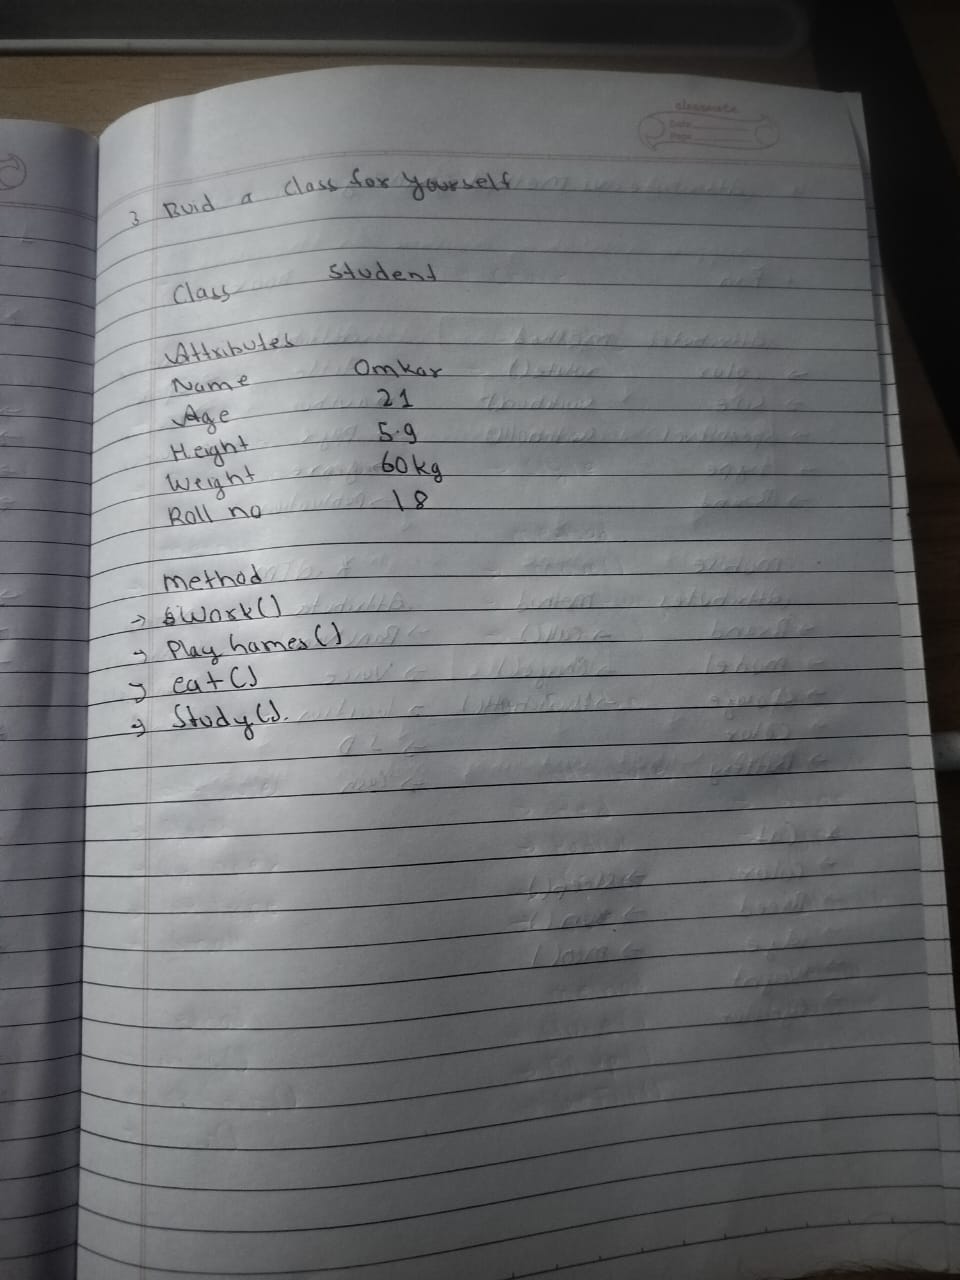 classmate
Date
Page
3 Buid a Class for Yourself
Class Student
Attributes
Name Omkar
Age 21
Height 5.9
Weight 60kg
Roll no 18
method
→ Work()
→ Play hames()
→ eat()
→ Study().